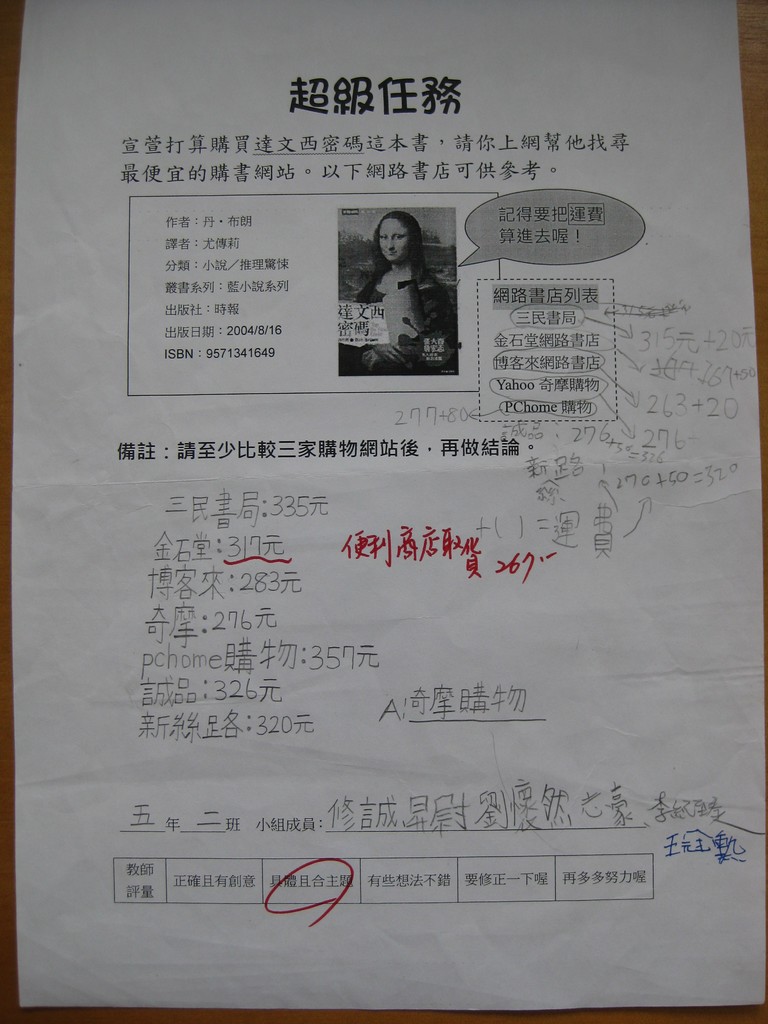 超級任務
宣萱打算購買達文西密碼這本書，請你上網幫他找尋
最便宜的購書網站。以下網路書店可供參考。
作者：丹·布朗
譯者：尤傳莉
分類：小說／推理驚悚
叢書系列：藍小說系列
出版社：時報
出版日期：2004/8/16
ISBN：9571341649
達文西
密碼
記得要把運費
算進去喔！
網路書店列表
三民書局
金石堂網路書店
博客來網路書店
Yahoo 奇摩購物
PChome 購物
315元+20元
267+50
263+20
276
277+80
誠品：276
+50
=326
新絲路：
270+50=320
+( )=運費
備註：請至少比較三家購物網站後，再做結論。
三民書局:335元
金石堂:317元
便利商店取貨 267.-
博客來:283元
奇摩:276元
pchome購物:357元
誠品:326元
新絲路:320元
A:奇摩購物
五年二班 小組成員:修誠 昇尉 劉懷然 志豪
教師
評量
正確且有創意
具體且合主題
有些想法不錯
要修正一下喔
再多多努力喔